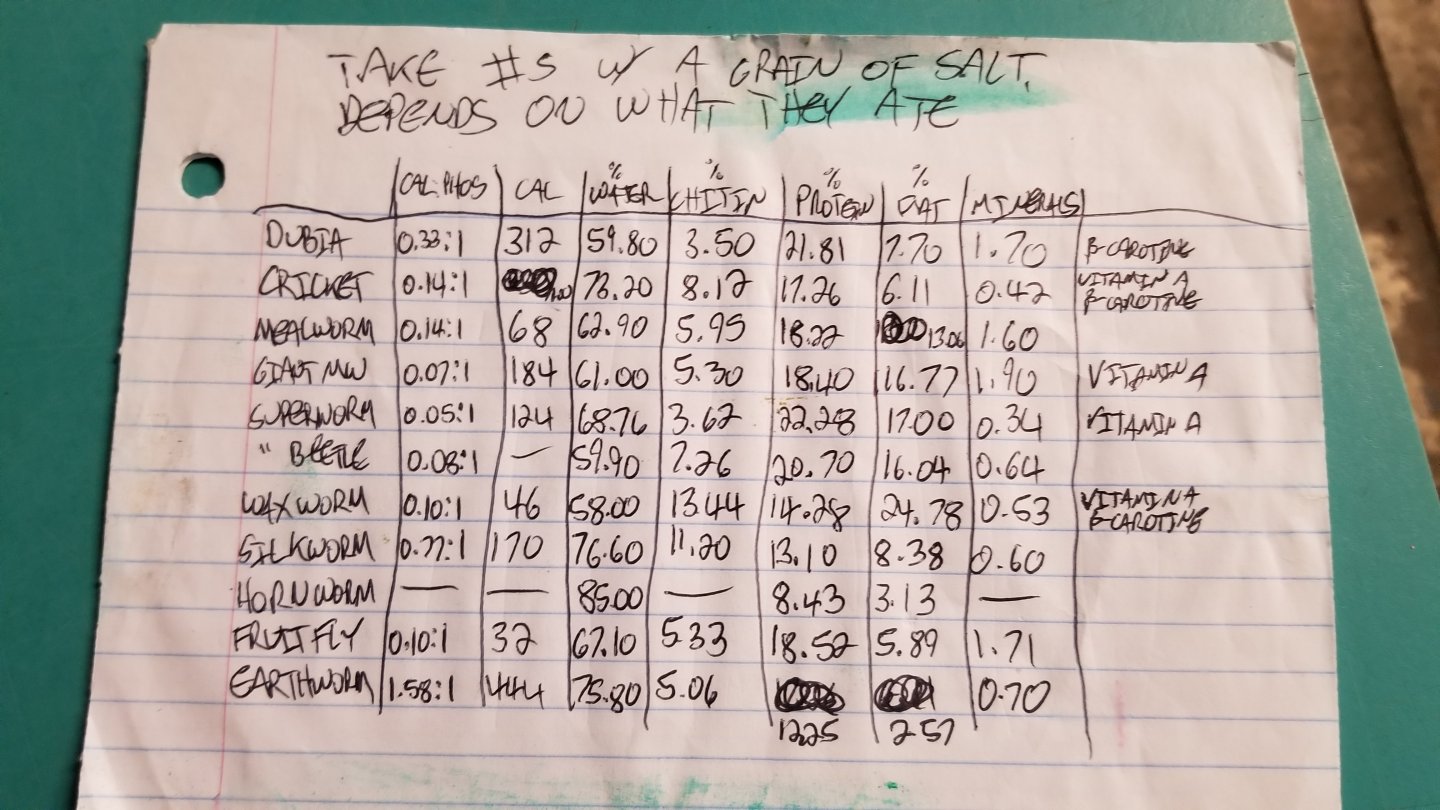 TAKE #S W/ A GRAIN OF SALT.
DEPENDS ON WHAT THEY ATE
CAL:PHOS CAL % WATER % CHITIN % PROTEIN % FAT MINERALS
DUBIA 0.33:1 312 59.80 3.50 21.81 7.70 1.70 β-CAROTINE
CRICKET 0.14:1 73.20 8.12 17.26 6.11 0.42 VITAMIN A β-CAROTINE
MEALWORM 0.14:1 68 62.90 5.95 18.22 13.06 1.60
GIANT MW 0.07:1 184 61.00 5.30 18.40 16.77 1.90 VITAMIN A
SUPERWORM 0.05:1 124 68.76 3.62 22.28 17.00 0.34 VITAMIN A
" BEETLE 0.08:1 — 59.90 7.26 20.70 16.04 0.64
WAXWORM 0.10:1 46 58.00 13.44 14.28 24.78 0.53 VITAMIN A β-CAROTINE
SILKWORM 170 76.60 11.20 13.10 8.38 0.60
HORNWORM — — 85.00 — 8.43 3.13 —
FRUIT FLY 0.10:1 32 67.10 5.33 18.52 5.89 1.71
EARTHWORM 1.58:1 444 75.80 5.06 0.70
12.25 2.57